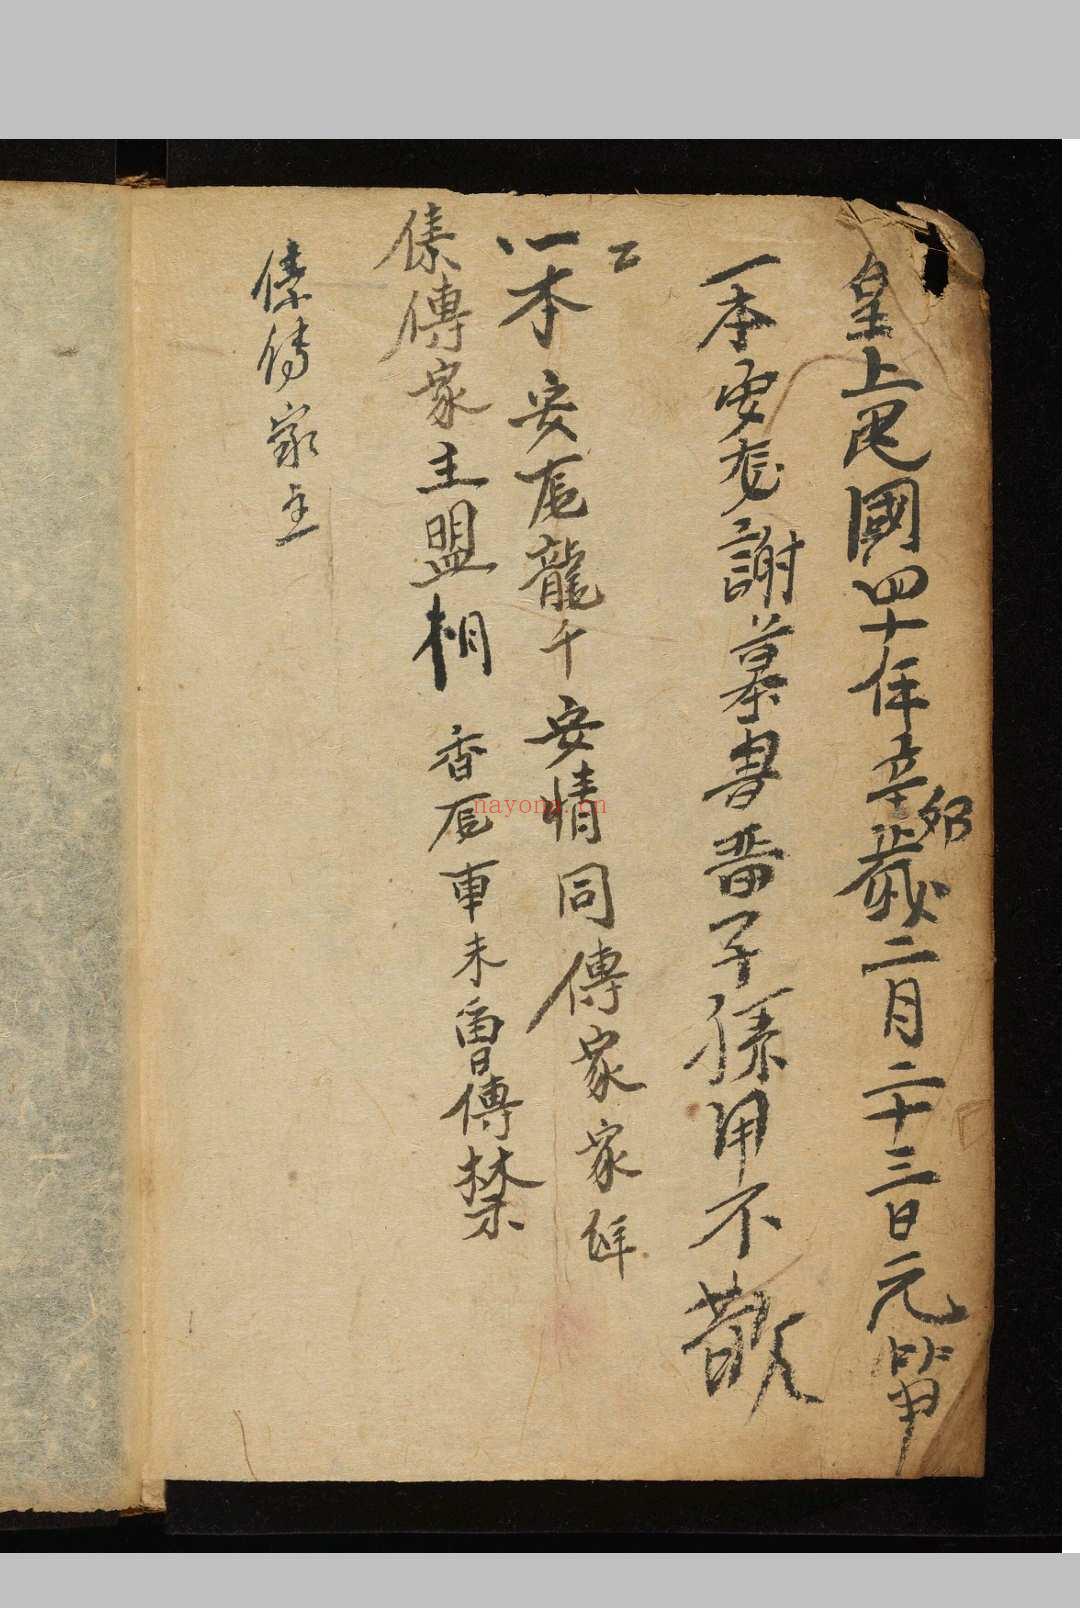 皇上民國四十年辛卯歲二月二十三日元筆
一本安龙謝墓書畨子孫用不散
二
一本安龙龍千安情同傳家家
傳家主盟相 香龙車未曾傳禁
傳家主
nayona.cn